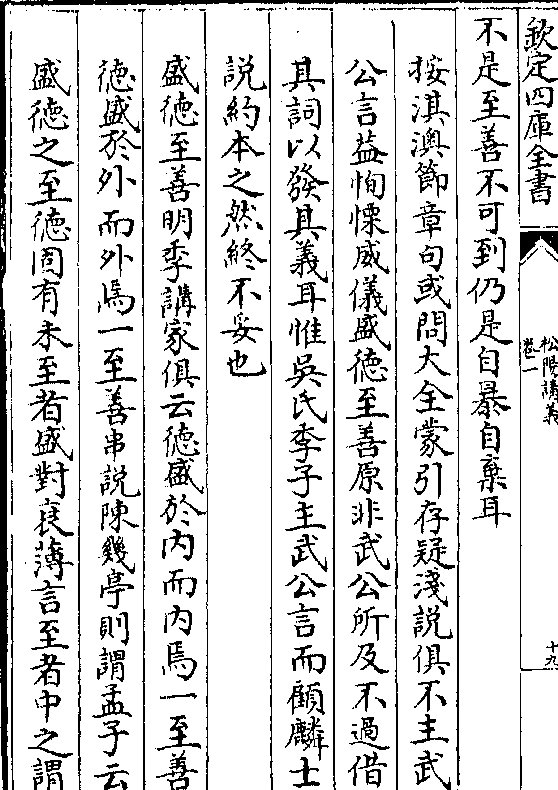 欽定四庫全書
松陽講義
卷一
十九
不是至善不可到仍是自暴自棄耳
按淇澳節章句或問大全蒙引存疑淺説俱不主武
公言葢恂慄威儀盛德至善原非武公所及不過借
其詞以發其義耳惟吳氏季子主武公言而顧麟士
説約本之然終不妥也
盛徳至善明季講家俱云徳盛於内而内焉一至善
徳盛於外而外焉一至善串説陳幾亭則謂孟子云
盛徳之至徳固有未至者盛對衰薄言至者中之謂